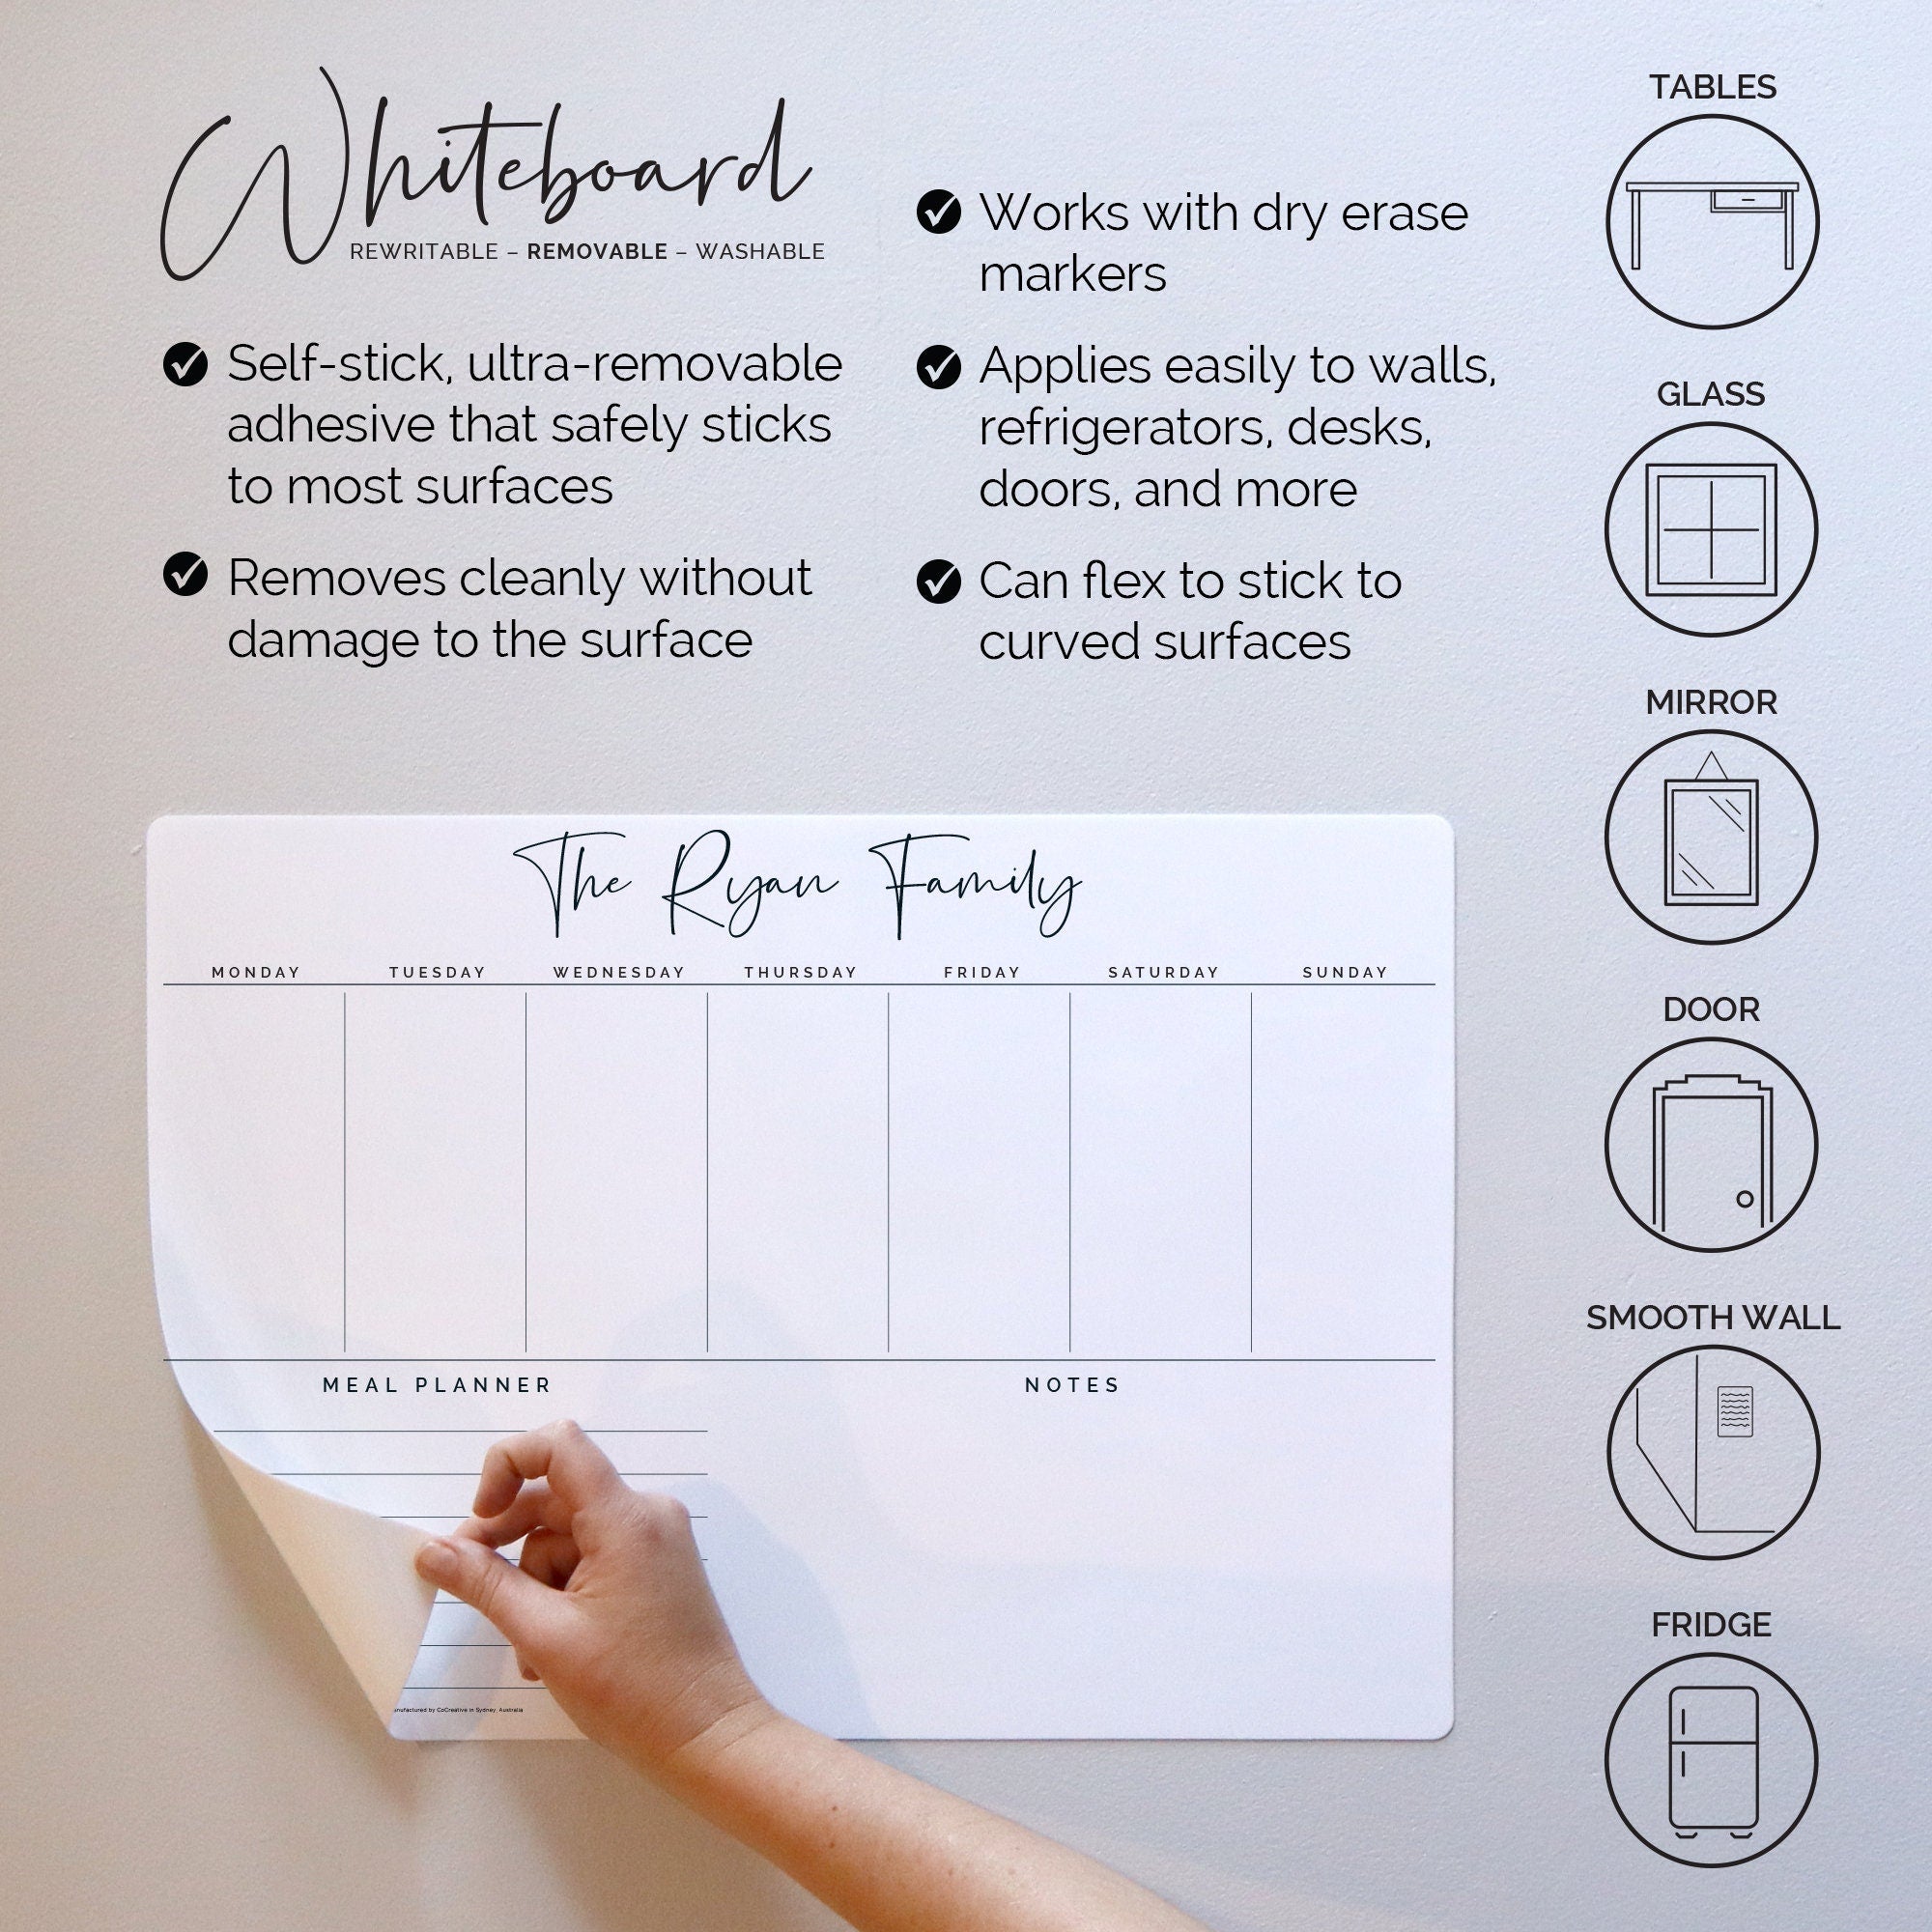 Whiteboard
REWRITABLE – REMOVABLE – WASHABLE
Self-stick, ultra-removable
adhesive that safely sticks
to most surfaces
Removes cleanly without
damage to the surface
Works with dry erase
markers
Applies easily to walls,
refrigerators, desks,
doors, and more
Can flex to stick to
curved surfaces
TABLES
GLASS
MIRROR
DOOR
SMOOTH WALL
FRIDGE
The Ryan Family
MONDAY TUESDAY WEDNESDAY THURSDAY FRIDAY SATURDAY SUNDAY
MEAL PLANNER NOTES
by CoCreative in Sydney, Australia